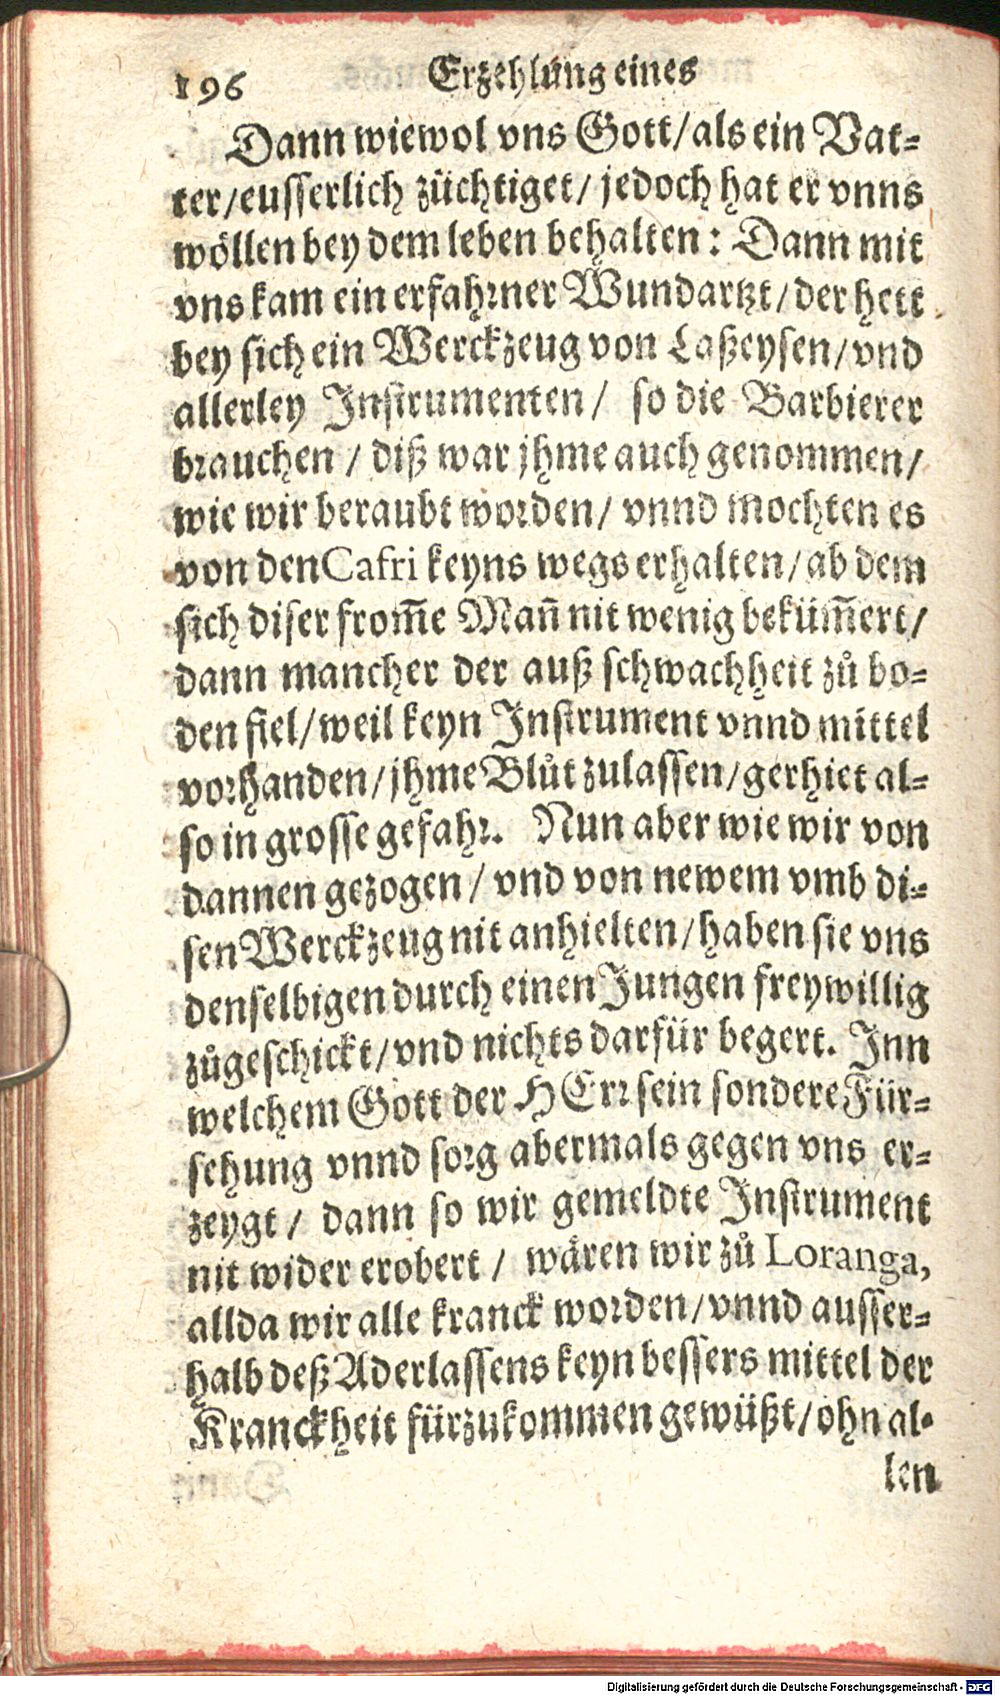 196 Erzehlung eines
Dann wiewol vns Gott/als ein Vat-
ter/eusserlich züchtiget/ jedoch hat er vnns
wöllen bey dem leben behalten: Dann mit
vns kam ein erfahrner Wundartzt/der hett
bey sich ein Werckzeug von Laßeysen/vnd
allerley Instrumenten/ so die Barbierer
brauchen / diß war jhme auch genommen/
wie wir beraubt worden/ vnnd mochten es
von den Cafri keyns wegs erhalten/ab dem
sich diser from̄e Man̄ nit wenig beküm̄ert/
dann mancher der auß schwachheit zů bo-
den fiel/weil keyn Instrument vnnd mittel
vorhanden/jhme Blůt zulassen/gerhiet al-
so in grosse gefahr. Nun aber wie wir von
dannen gezogen/ vnd von newem vmb di-
sen Werckzeug nit anhielten/haben sie vns
denselbigen durch einen Jungen freywillig
zůgeschickt/vnd nichts darfür begert. Inn
welchem Gott der HErr sein sondere Für-
sehung vnnd sorg abermals gegen vns er-
zeygt/ dann so wir gemeldte Instrument
nit wider erobert / wären wir zů Loranga,
allda wir alle kranck worden/vnnd ausser-
halb deß Aderlassens keyn bessers mittel der
Kranckheit fürzukommen gewüßt/ohn al-
len
Digitalisierung gefördert durch die Deutsche Forschungsgemeinschaft - DFG